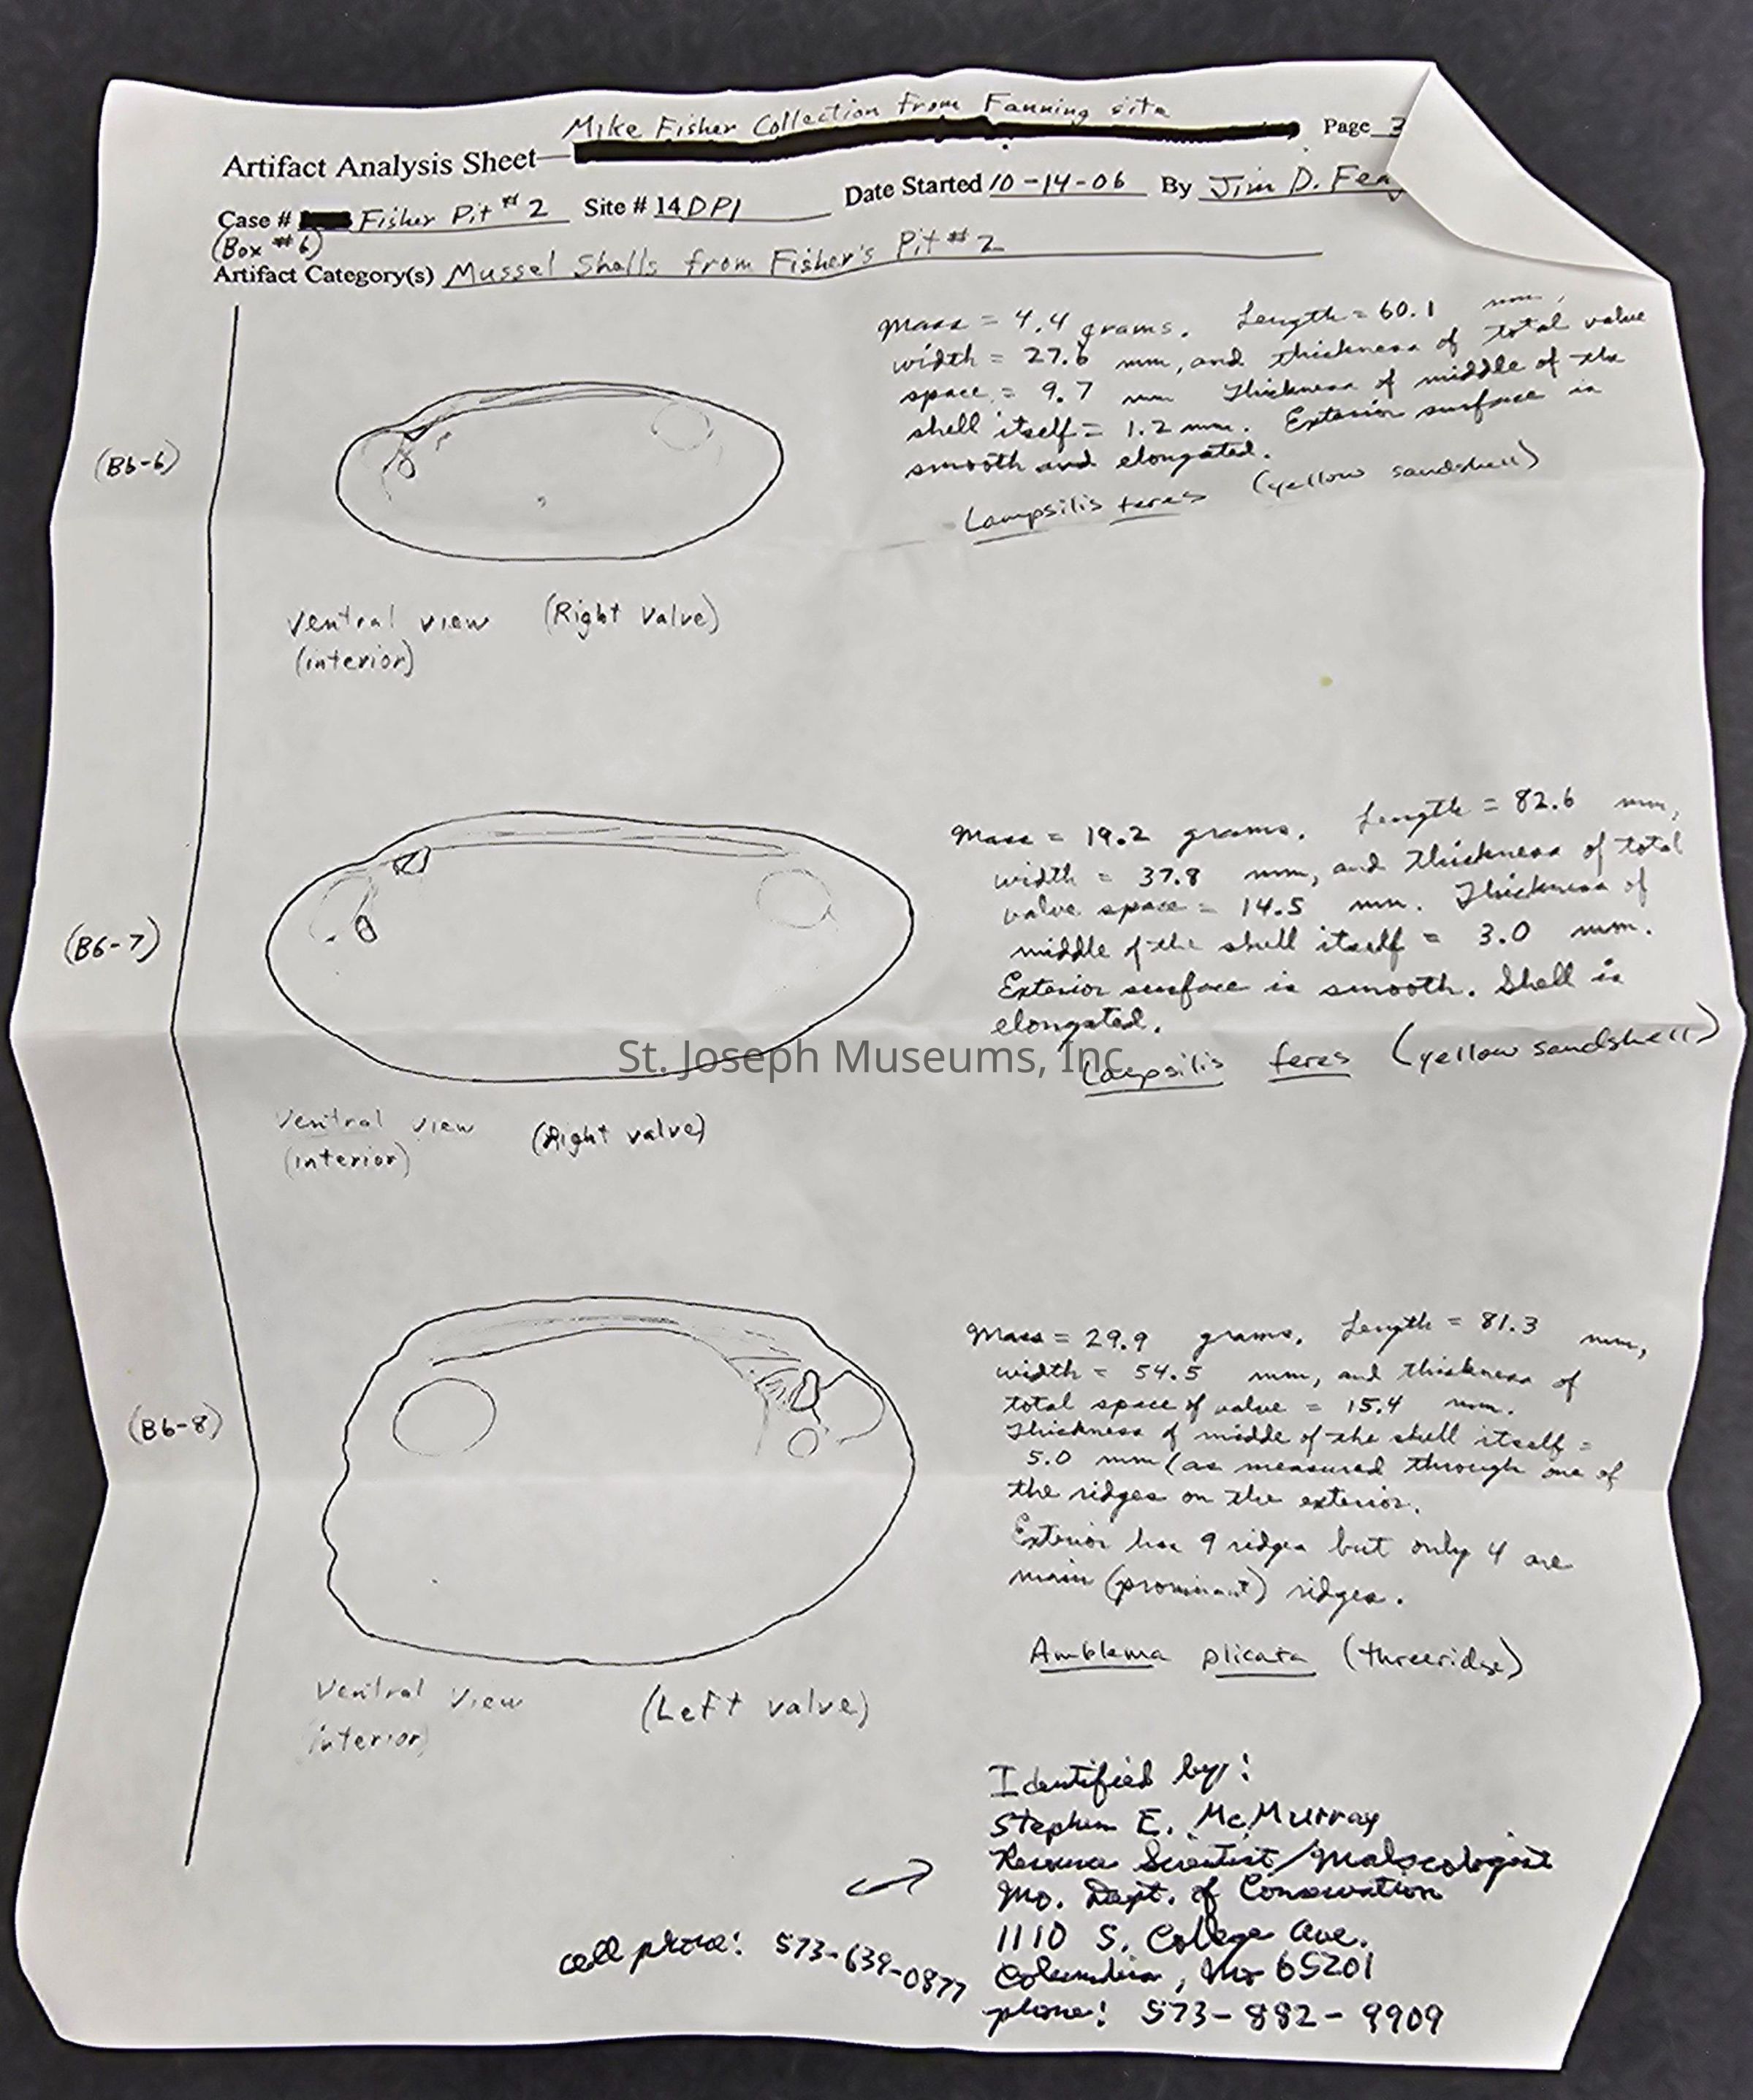 Mike Fisher Collection from Fanning site
Page 3
Artifact Analysis Sheet
Date Started 10-14-06 By Jim D. Fea
Case # Fisher Pit #2 Site # 14DP1
(Box #6)
Artifact Category(s) Mussel Shells from Fisher's Pit #2
(B6-6)
Mass = 4.4 grams. Length = 60.1 mm,
width = 27.6 mm, and thickness of total valve
space = 9.7 mm Thickness of middle of the
shell itself = 1.2 mm. Exterior surface is
smooth and elongated.
Lampsilis teres (yellow sandshell)
Ventral view (Right Valve)
(interior)
(B6-7)
Mass = 19.2 grams. Length = 82.6 mm,
width = 37.8 mm, and thickness of total
valve space = 14.5 mm. Thickness of
middle of the shell itself = 3.0 mm.
Exterior surface is smooth. Shell is
elongated.
Lampsilis teres (yellow sandshell)
St. Joseph Museums, Inc.
Ventral view (Right valve)
(interior)
(B6-8)
Mass = 29.9 grams. Length = 81.3 mm,
width = 54.5 mm, and thickness of
total space of valve = 15.4 mm.
Thickness of middle of the shell itself =
5.0 mm (as measured through one of
the ridges on the exterior.
Exterior has 9 ridges but only 4 are
main (prominant) ridges.
Amblema plicata (threeridge)
Ventral View (Left valve)
interior)
Identified by:
Stephen E. McMurray
Resource Scientist/Malacologist
Mo. Dept. of Conservation
1110 S. College Ave.
Columbia, Mo 65201
phone: 573-882-9909
cell phone: 573-639-0877